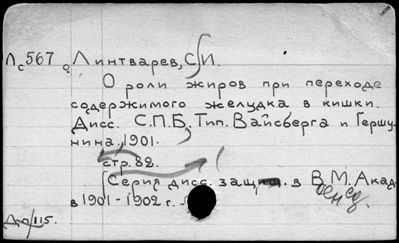 Лс567 Линтварев, С.И.
О роли жиров при переходе
содержимого желудка в кишки.
Дисс. С.П.Б. Тип. Вайсберга и Гершу-
нина, 1901.
стр. 82.
(Серия дисс. защищ. в В.М. Акад.
в 1901-1902 г.
До/115.